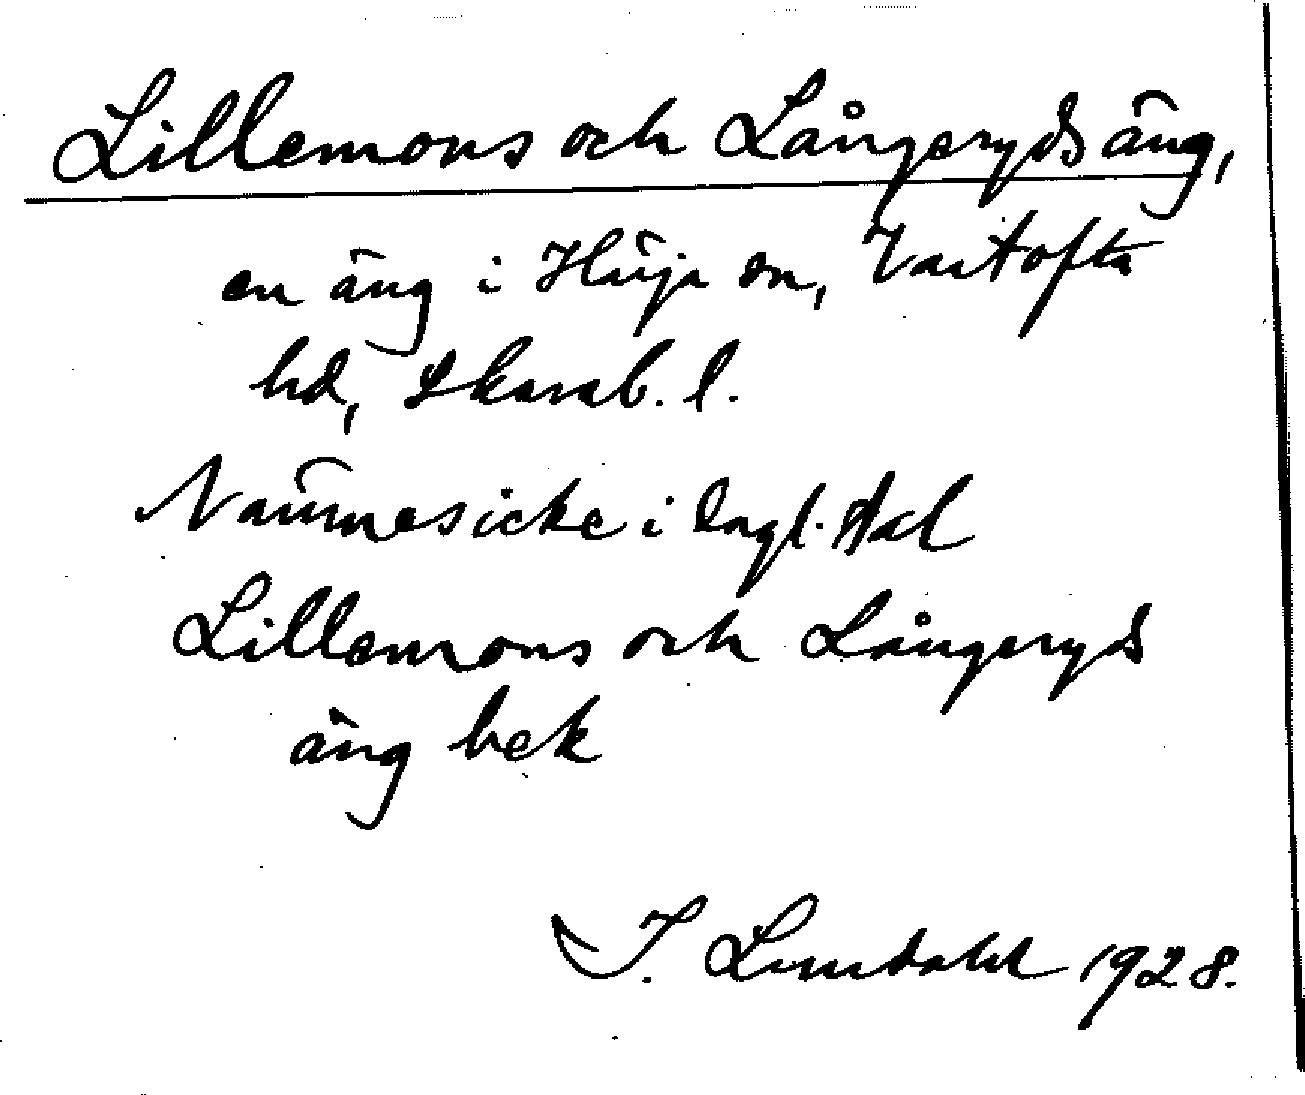 Lillemons och Långeryds äng,
en äng i Höja sn, Vartofta
hd, Skarab. l.
Nämnes icke i Dagl. Akl
Lillemons och Långeryds
äng bek
I. Lundahl 1928.